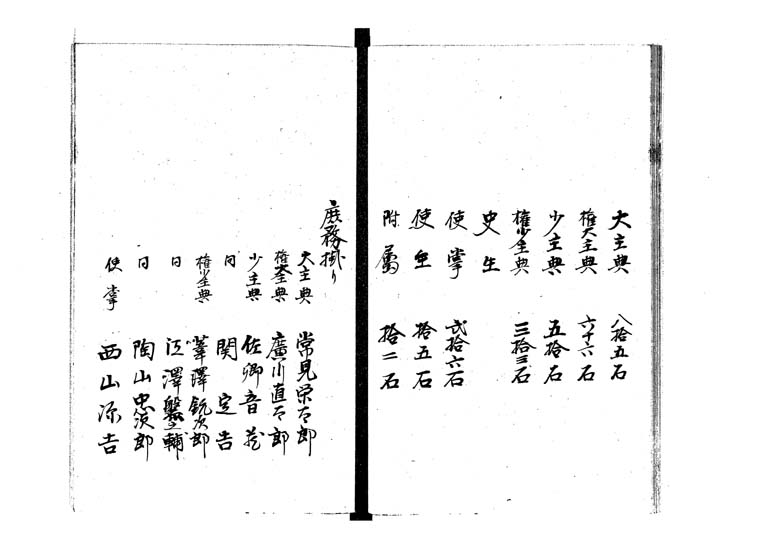 大主典 八拾五石
権大主典 六十六石
少主典 五拾石
権少主典 三拾三石
史生
使掌 弐拾六石
使部 拾五石
附属 拾二石
庶務掛り
大主典 常見栄太郎
権大主典 廣川直太郎
少主典 佐郷音蔵
同 関定吉
権少主典 葦澤鋭次郎
同 江澤盤之輔
同 陶山忠次郎
使掌 西山源吉